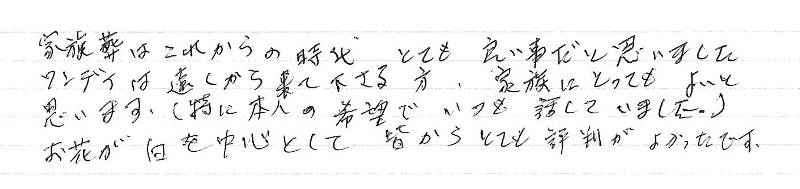 家族葬はこれからの時代 とても 良い事だと思いました
ワンデイは遠くから来て下さる方、家族にとってもよいと
思います。(特に本人の希望でいつも話していました。)
お花が白を中心として皆からとても評判がよかったです。